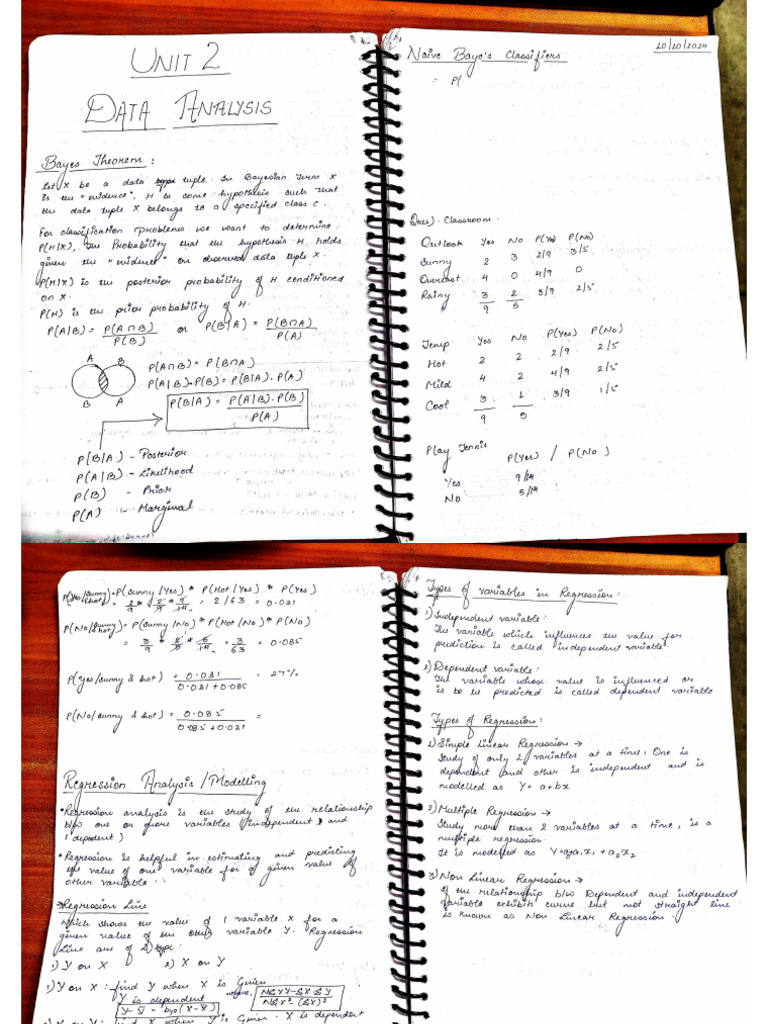 UNIT 2
DATA ANALYSIS
Bayes Theorem :
Let X be a data tuple. In Bayesian term X
is the "evidence", H is some hypothesis such that
the data tuple X belongs to a specified class C.
For classification problems we want to determine
P(H|X), the Probability that the hypothesis H holds
given the "evidence" on observed data tuple X.
P(H|X) is the posterior probability of H conditioned
on X.
P(H) is the prior probability of H.
P(A|B) = P(A∩B) / P(B) or P(B|A) = P(B∩A) / P(A)
A B
P(A∩B) = P(B∩A)
P(A|B)·P(B) = P(B|A)·P(A)
B A
P(B|A) = P(A|B)·P(B) / P(A)
P(B|A) - Posterior
P(A|B) - Likelihood
P(B) - Prior
P(A) - Marginal
20/20/2024
Naive Baye's Classifiers
= P(
Ques). Classroom.
Outlook Yes No P(Yes) P(No)
Sunny 2 3 2/9 3/5
Overcast 4 0 4/9 0
Rainy 3 2 3/9 2/5
9 5
Temp Yes No P(Yes) P(No)
Hot 2 2 2/9 2/5
Mild 4 2 4/9 2/5
Cool 3 1 3/9 1/5
9 5
Play Tennis P(Yes) / P(No)
Yes 9/14
No 5/14
P(Yes/Sunny & hot) = P(Sunny/Yes) * P(Hot/Yes) * P(Yes)
= 2/9 * 2/9 * 9/14 = 2/63 = 0.031
P(No/Sunny & hot) = P(Sunny/No) * P(Hot/No) * P(No)
= 3/9 * 2/5 * 5/14 = 3/63 = 0.085
P(Yes/sunny & hot) = 0.031 / 0.031+0.085 = 27%
P(No/sunny & hot) = 0.085 / 0.085+0.031 =
Regression Analysis / Modelling
• Regression analysis is the study of the relationship
b/w one or more variables (independent) and
1 dependent)
• Regression is helpful in estimating and predicting
the value of one variable for of given value of
other variable
→ Regression Line
Which shows the value of 1 variable X for a
given value of the other variable Y. Regression
Line are of 2) type:
1) Y on X 2) X on Y
1) Y on X : find Y when X is Given
Y is dependent where, NΣXY-ΣX·ΣY / NΣX²-(ΣX)²
Y-Ȳ = byx(X-X̄)
X on Y: find X when Y is Given. X is dependent
Types of variables in Regression:
1) Independent variable:
The variable which influences the value for
prediction is called independent variable.
2) Dependent variable:
The variable whose value is influenced or
is to be predicted is called dependent variable
Types of Regression:
1) Simple Linear Regression →
Study of only 2 variables at a time; One is
dependent and other is independent and is
modelled as Y = a+bx
2) Multiple Regression →
Study more than 2 variables at a time, is a
multiple regression.
It is modelled as Y=a₀a₁x₁ + a₂x₂
3) Non Linear Regression →
If the relationship b/w Dependent and independent
variable exhibits curve but not straight line
is known as Non Linear Regression.